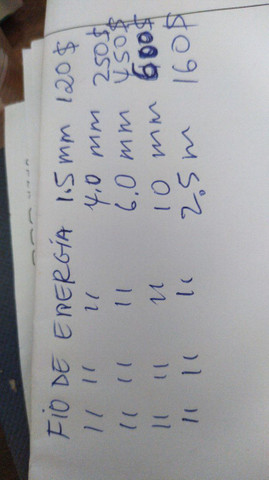 FIO DE ENERGÍA 1.5 mm 120$
" " " 4.0 mm 250$
" " " 6.0 mm 450$
" " " 10 mm 600$
" " " 2.5 m 160$